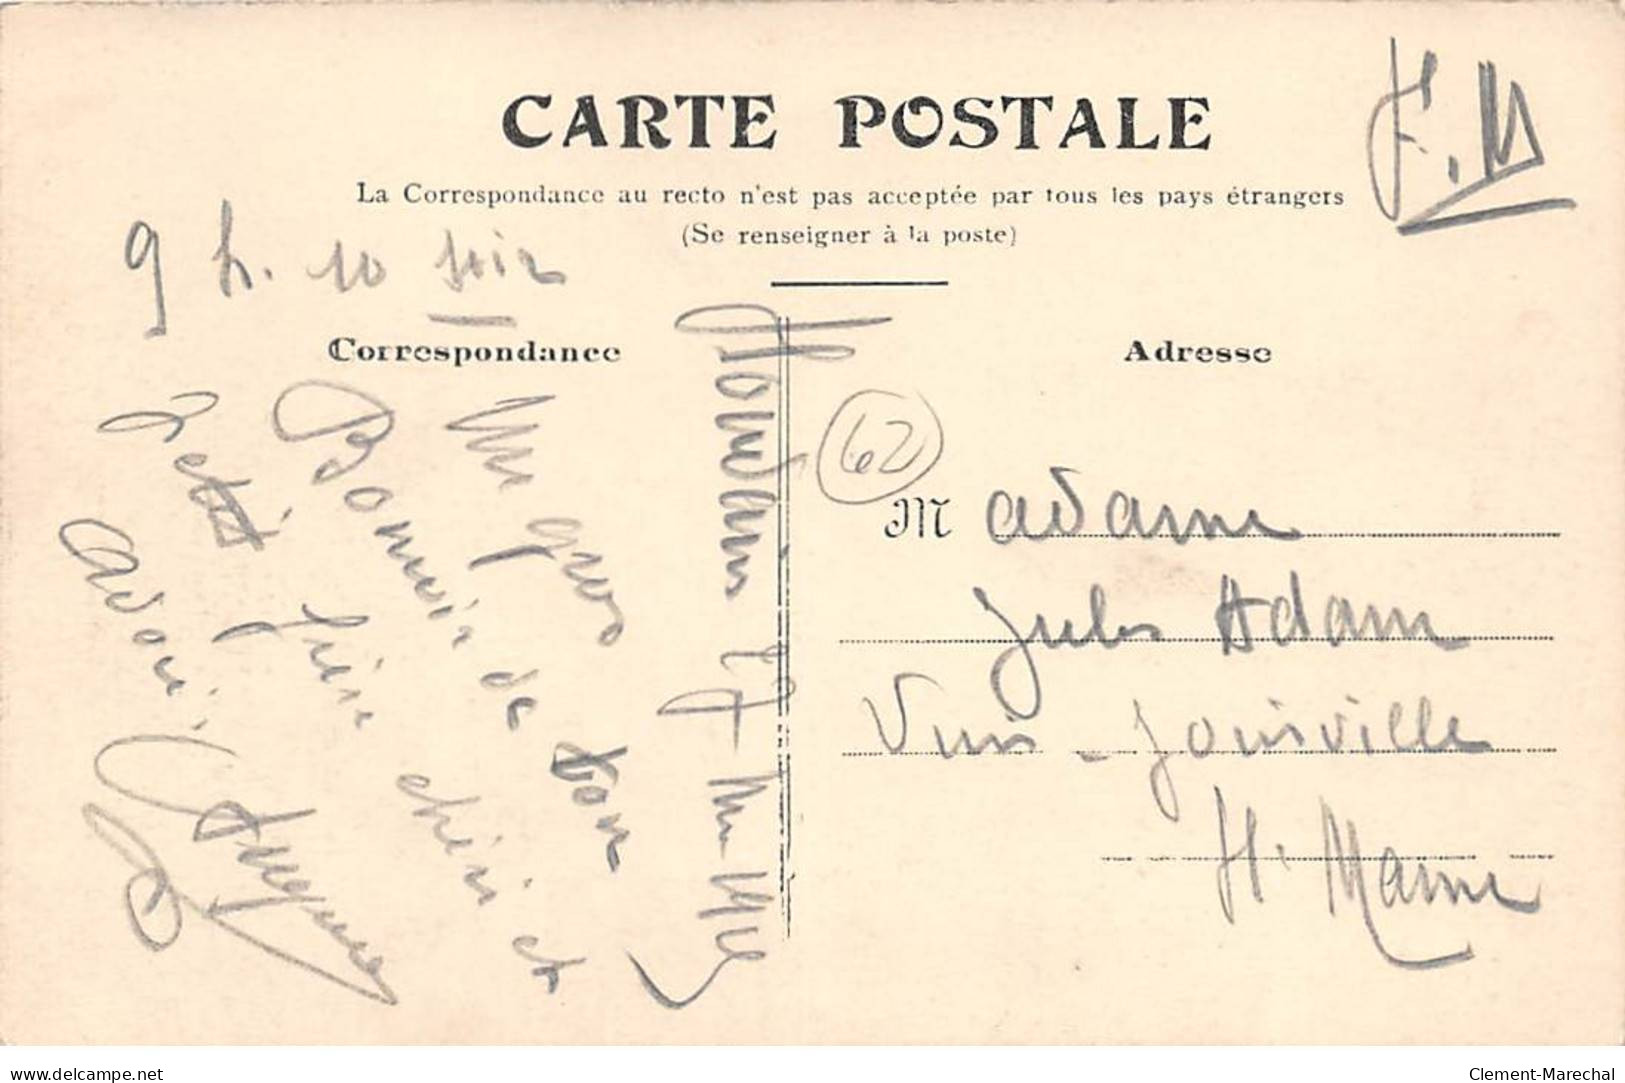 CARTE POSTALE
F. M
La Correspondance au recto n'est pas acceptée par tous les pays étrangers
(Se renseigner à la poste)
9 h. 10 soir
Correspondance
Adresse
Un gros
Bonsoir de ton
petit frère chéri et
62
M adame
Jules Adam
Joinville
H. Marne
www.delcampe.net
Clement-Marechal